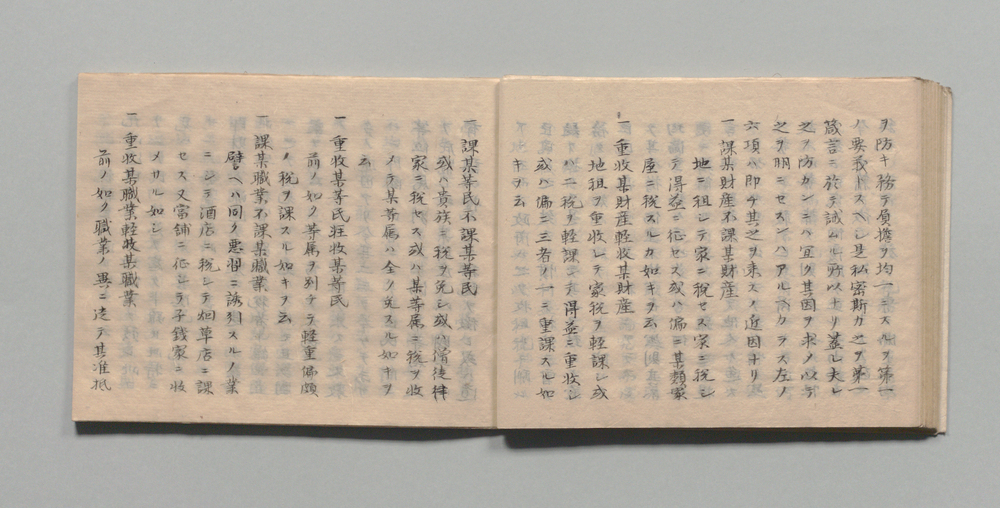 ヲ防キ務テ負擔ヲ均一ニスルヲ第一
ノ要義トスヘシ是私密斯カ之ヲ第一
箴言ニ於テ誡ムル所以ナリ蓋シ夫レ
之ヲ防カンニハ宜ク其因ヲ求メ以テ
之ヲ明ニセスンハアル可カラス左ノ
六項ハ即チ其之ヲ来スノ近因ナリ
一課某財産不課某財産
地ニ租シテ家ニ税セス家ニ税シ
テ得益ニ征セス或ハ偏ニ某類家
屋ニ税スルカ如キヲ云
一重收某財産軽收某財産
地租ヲ重收シテ家税ヲ軽課シ或
ハ二税ヲ軽課シテ得益ニ重收シ
或ハ偏ニ三者ノ一ニ重課スル如
キヲ云
一課某等民不課某等民
或ハ貴族ニ税ヲ免シ或ハ僧徒
家ニ税セス或ハ某等属ニ税ヲ收
メテ某等属ハ全ク免スル如キヲ
云
一重收某等民軽收某等民
前ノ如ク等属ヲ別チテ軽重偏頗
ノ税ヲ課スル如キヲ云
課某職業不課某職業
譬ヘハ同ク悪習ニ誘引スルノ業
ニシテ酒店ニ税シテ烟草店ニ課
セス又當舗ニ征シテ子錢家ニ收
メサル如シ
一重收某職業軽收某職業
前ノ如ク職業ノ異ニ従テ其准抵